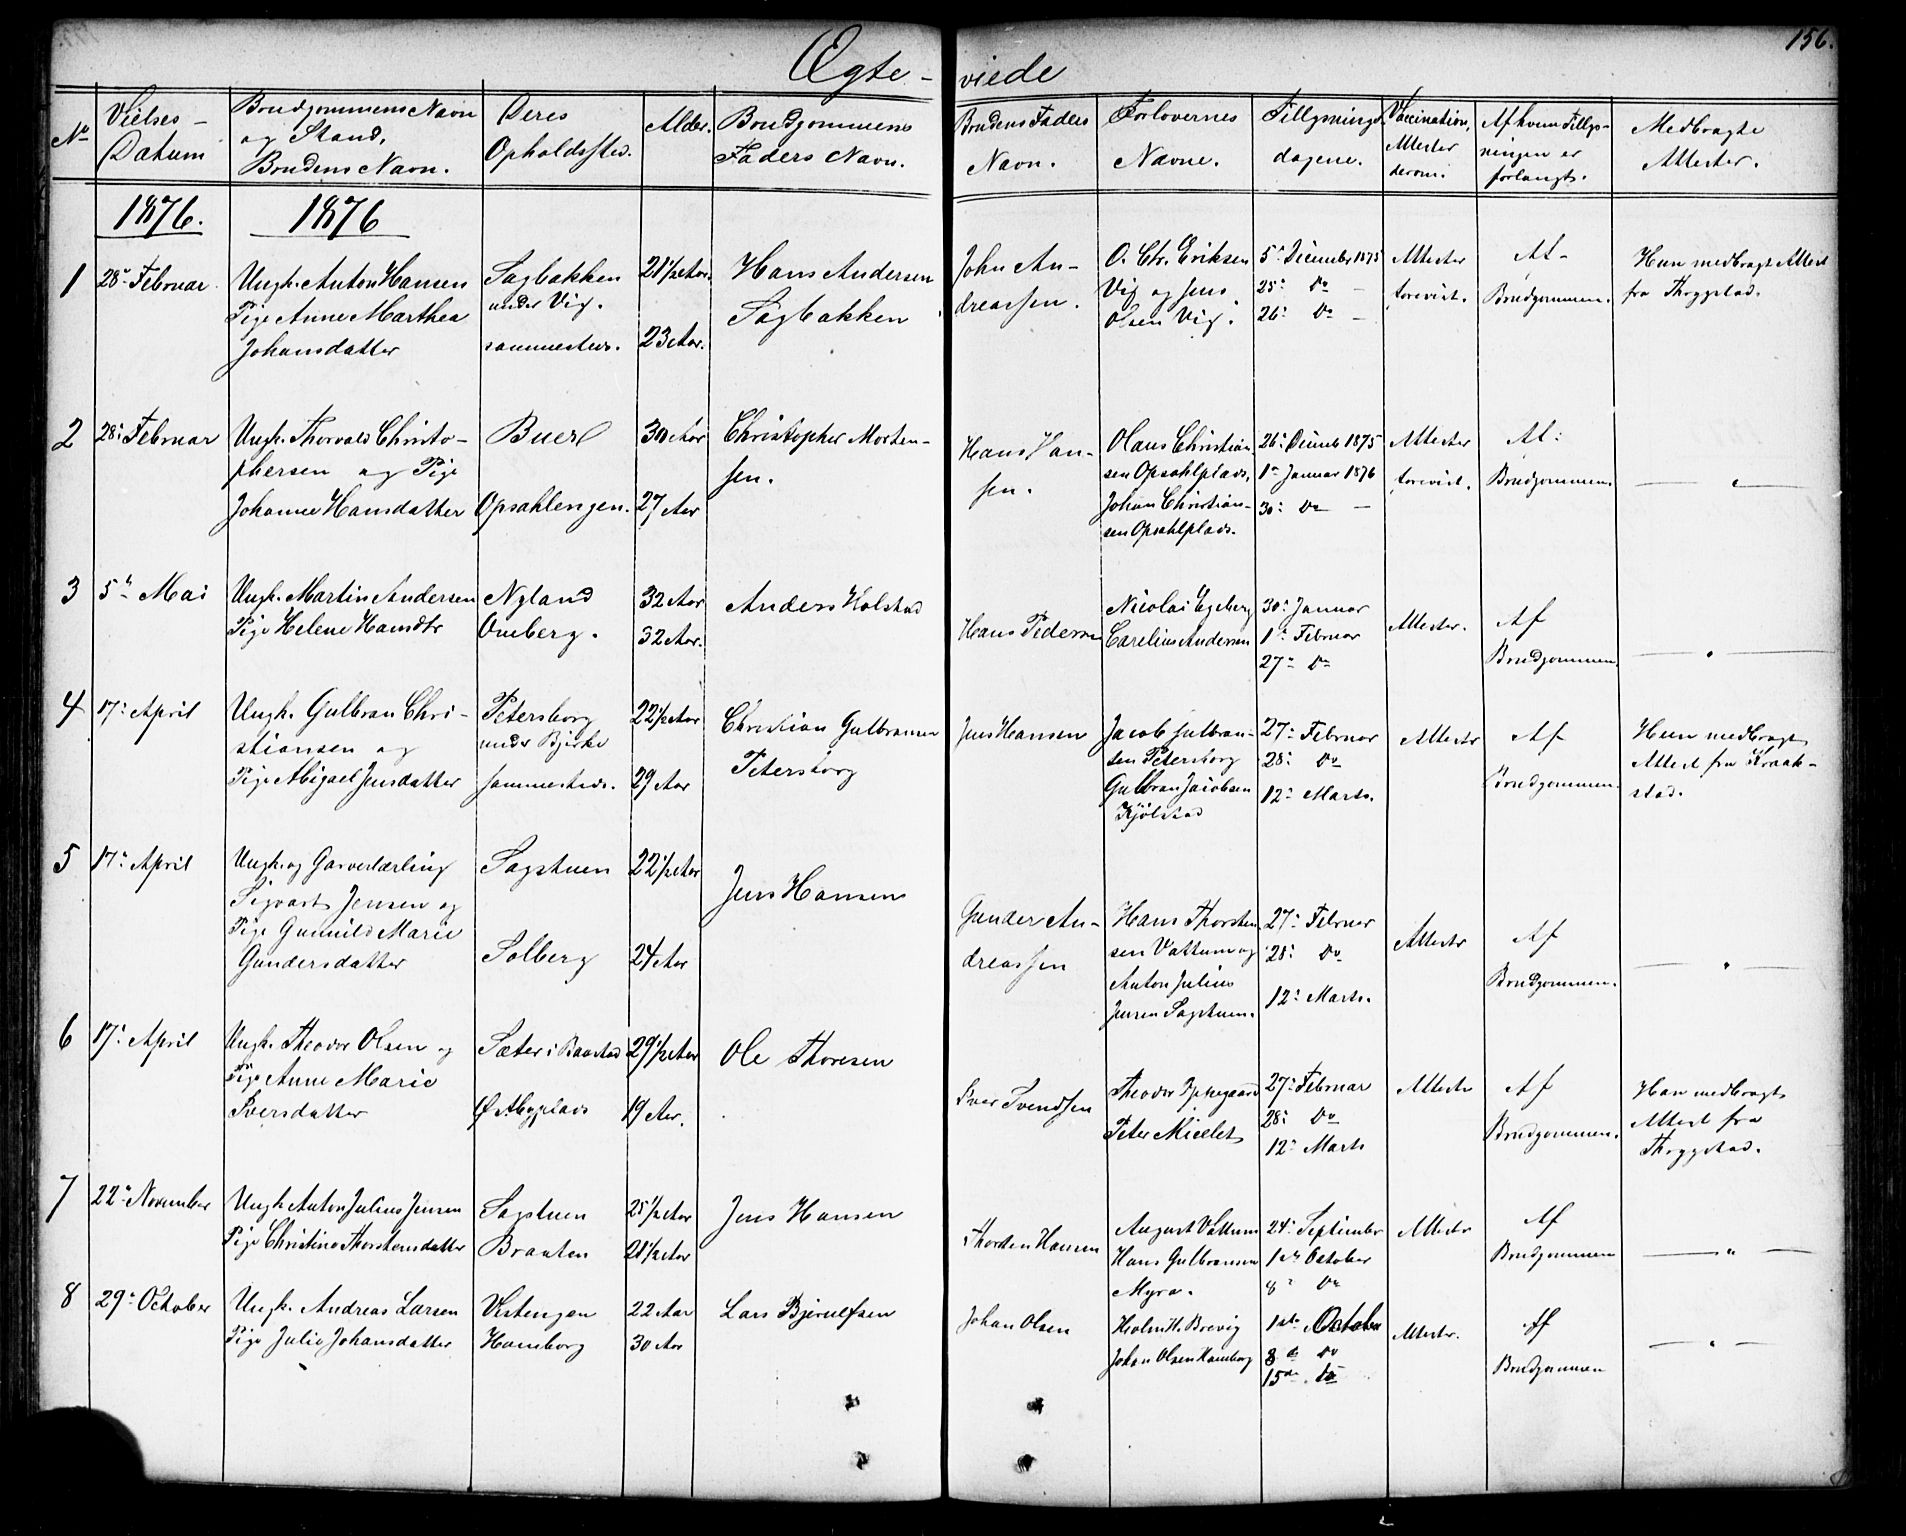 156.
Ægte-viede
No
Vielses-
Datum
Brudgommens Navn
og Stand,
Brudens Navn.
Deres
Opholdssted.
Alder.
Brudgommens
Faders Navn.
Brudens Faders
Navn.
Forlovernes
Navne.
Tillysnings-
dagene.
Vaccination,
Attester
derom.
Af hvem Tillys-
ningen er
forlangt.
Medbragte
Attester.
1876.
1876
1
28de Februar
Ungk. Anton Hansen
Pige Anne Marthea
Johansdatter
Sagbakken
under Vig.
sammesteds.
21 1/2 Aar.
23 Aar.
Hans Andersen
Sagbakken
John An-
dreassen.
O. Chr. Eriksen
Vig og Jens
Olsen Vig.
5te December 1875
25de Do —
26de Do —
Attester
forevist.
Af
Brudgommen.
Hun medbragt Attest
fra Thrygstad.
2
28de Februar
Ungk. Thorvald Christo-
phersen og Pige
Johanne Hansdatter
Buer
Opsahlengen.
30 Aar
27 Aar
Christopher Morten-
sen.
Hans Han-
sen.
Olaus Christian-
sen Opsahlplads,
Johan Christian-
sen Opsahlplads.
26de Decemb 1875
1ste Januar 1876
30te Do —
Attester
forevist.
Af
Brudgommen.
— " —
3
5te Mai
Ungk. Martin Andersen
Pige Helene Hansdtr
Nyland
Omberg.
32 Aar
32 Aar.
Anders Holstad
Hans Pedersen
Nicolai Egeberg
Carelius Andersen
30te Januar
1ste Februar
27de Do
Attester.
Af
Brudgommen
— " —
4
17de April
Ungk. Gulbran Chri-
stiansen og
Pige Abigael Jensdatter
Petersborg
under Bjerke
sammesteds.
22 1/2 Aar
29 Aar
Christian Gulbransen
Petersborg
Jens Hansen
Jacob Gulbran-
sen Petersborg
Gulbran Jacobsen
Kjölstad
27de Februar
28de Do
12te Marts.
Attestr
Af
Brudgommen.
Hun medbragt
Attest fra Kraak-
stad.
5
17de April
Ungk. og Garverlærling
Sigvart Jensen og
Pige Gunnild Marie
Gundersdatter
Sagstuen
Solberg
22 1/2 Aar
24 Aar
Jens Hansen
Gunder An-
dreassen
Hans Thorsten-
sen Vattum og
Anton Julius
Jensen Sagstuen.
27de Februar
28de Do
12te Marts.
Attestr
Af
Brudgommen.
— " —
6
17de April
Ungk. Theodor Olsen og
Pige Anne Marie
Iversdatter
Sæter i Baastad
Ø Abyplads
29 1/2 Aar
19 Aar.
Ole Thoresen
Iver Svendsen
Theodor
Peter Michelet
27de Februar
28de Do
12te Marts
Attestr
Af
Brudgommen.
Han medbragt
Attest fra
Thrygstad.
7
22de November
Ungk. Anton Julius Jensen
Pige Christine Thorstensdatter
Sagstuen
Braaten
25 1/2 Aar
21 1/2 Aar
Jens Hansen
Thorsten Hansen
August Vattum
Hans Gulbransen
Myra.
24de September
1ste October
8de Do
Attestr
Af
Brudgommen
— " —
8
29de October
Ungk. Andreas Larsen
Pige Julie Johansdatter
Vestengen
Hamborg
22 Aar
30 Aar
Lars Bjerulfsen
Johan Olsen
Holm H. Brevig
Johan Olsen Hamborg
1ste October
8de Do
15de Do
Attestr.
Af
Brudgommen
— " —